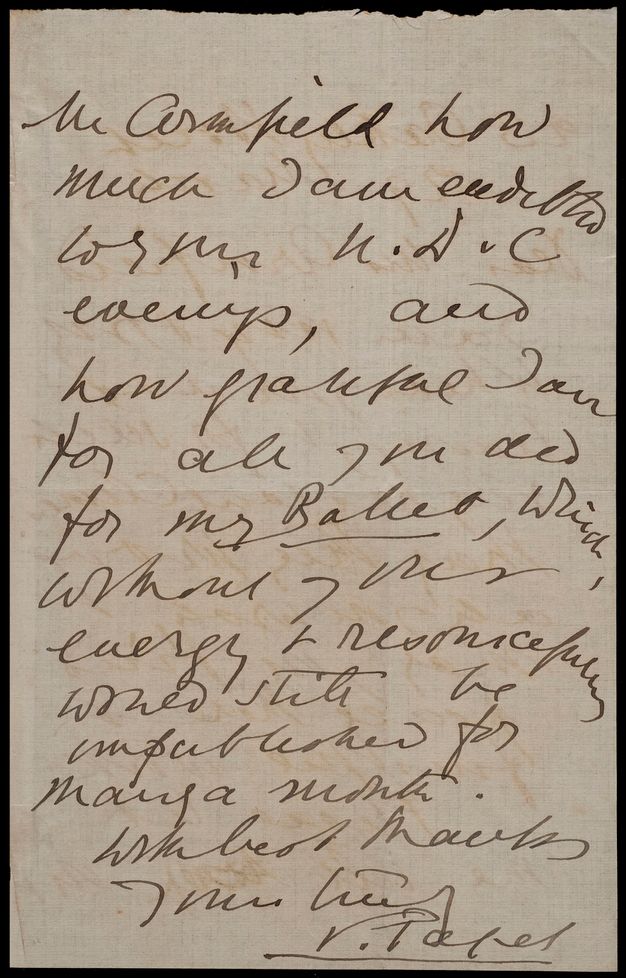 Mr Cornfield how
much I am indebted
to you
evenings, and
how grateful I am
for all you did
for my Ballet, which,
without your
energy & resourcefulness
would still be
unpublished for
many a month.
With best thanks
Yours truly